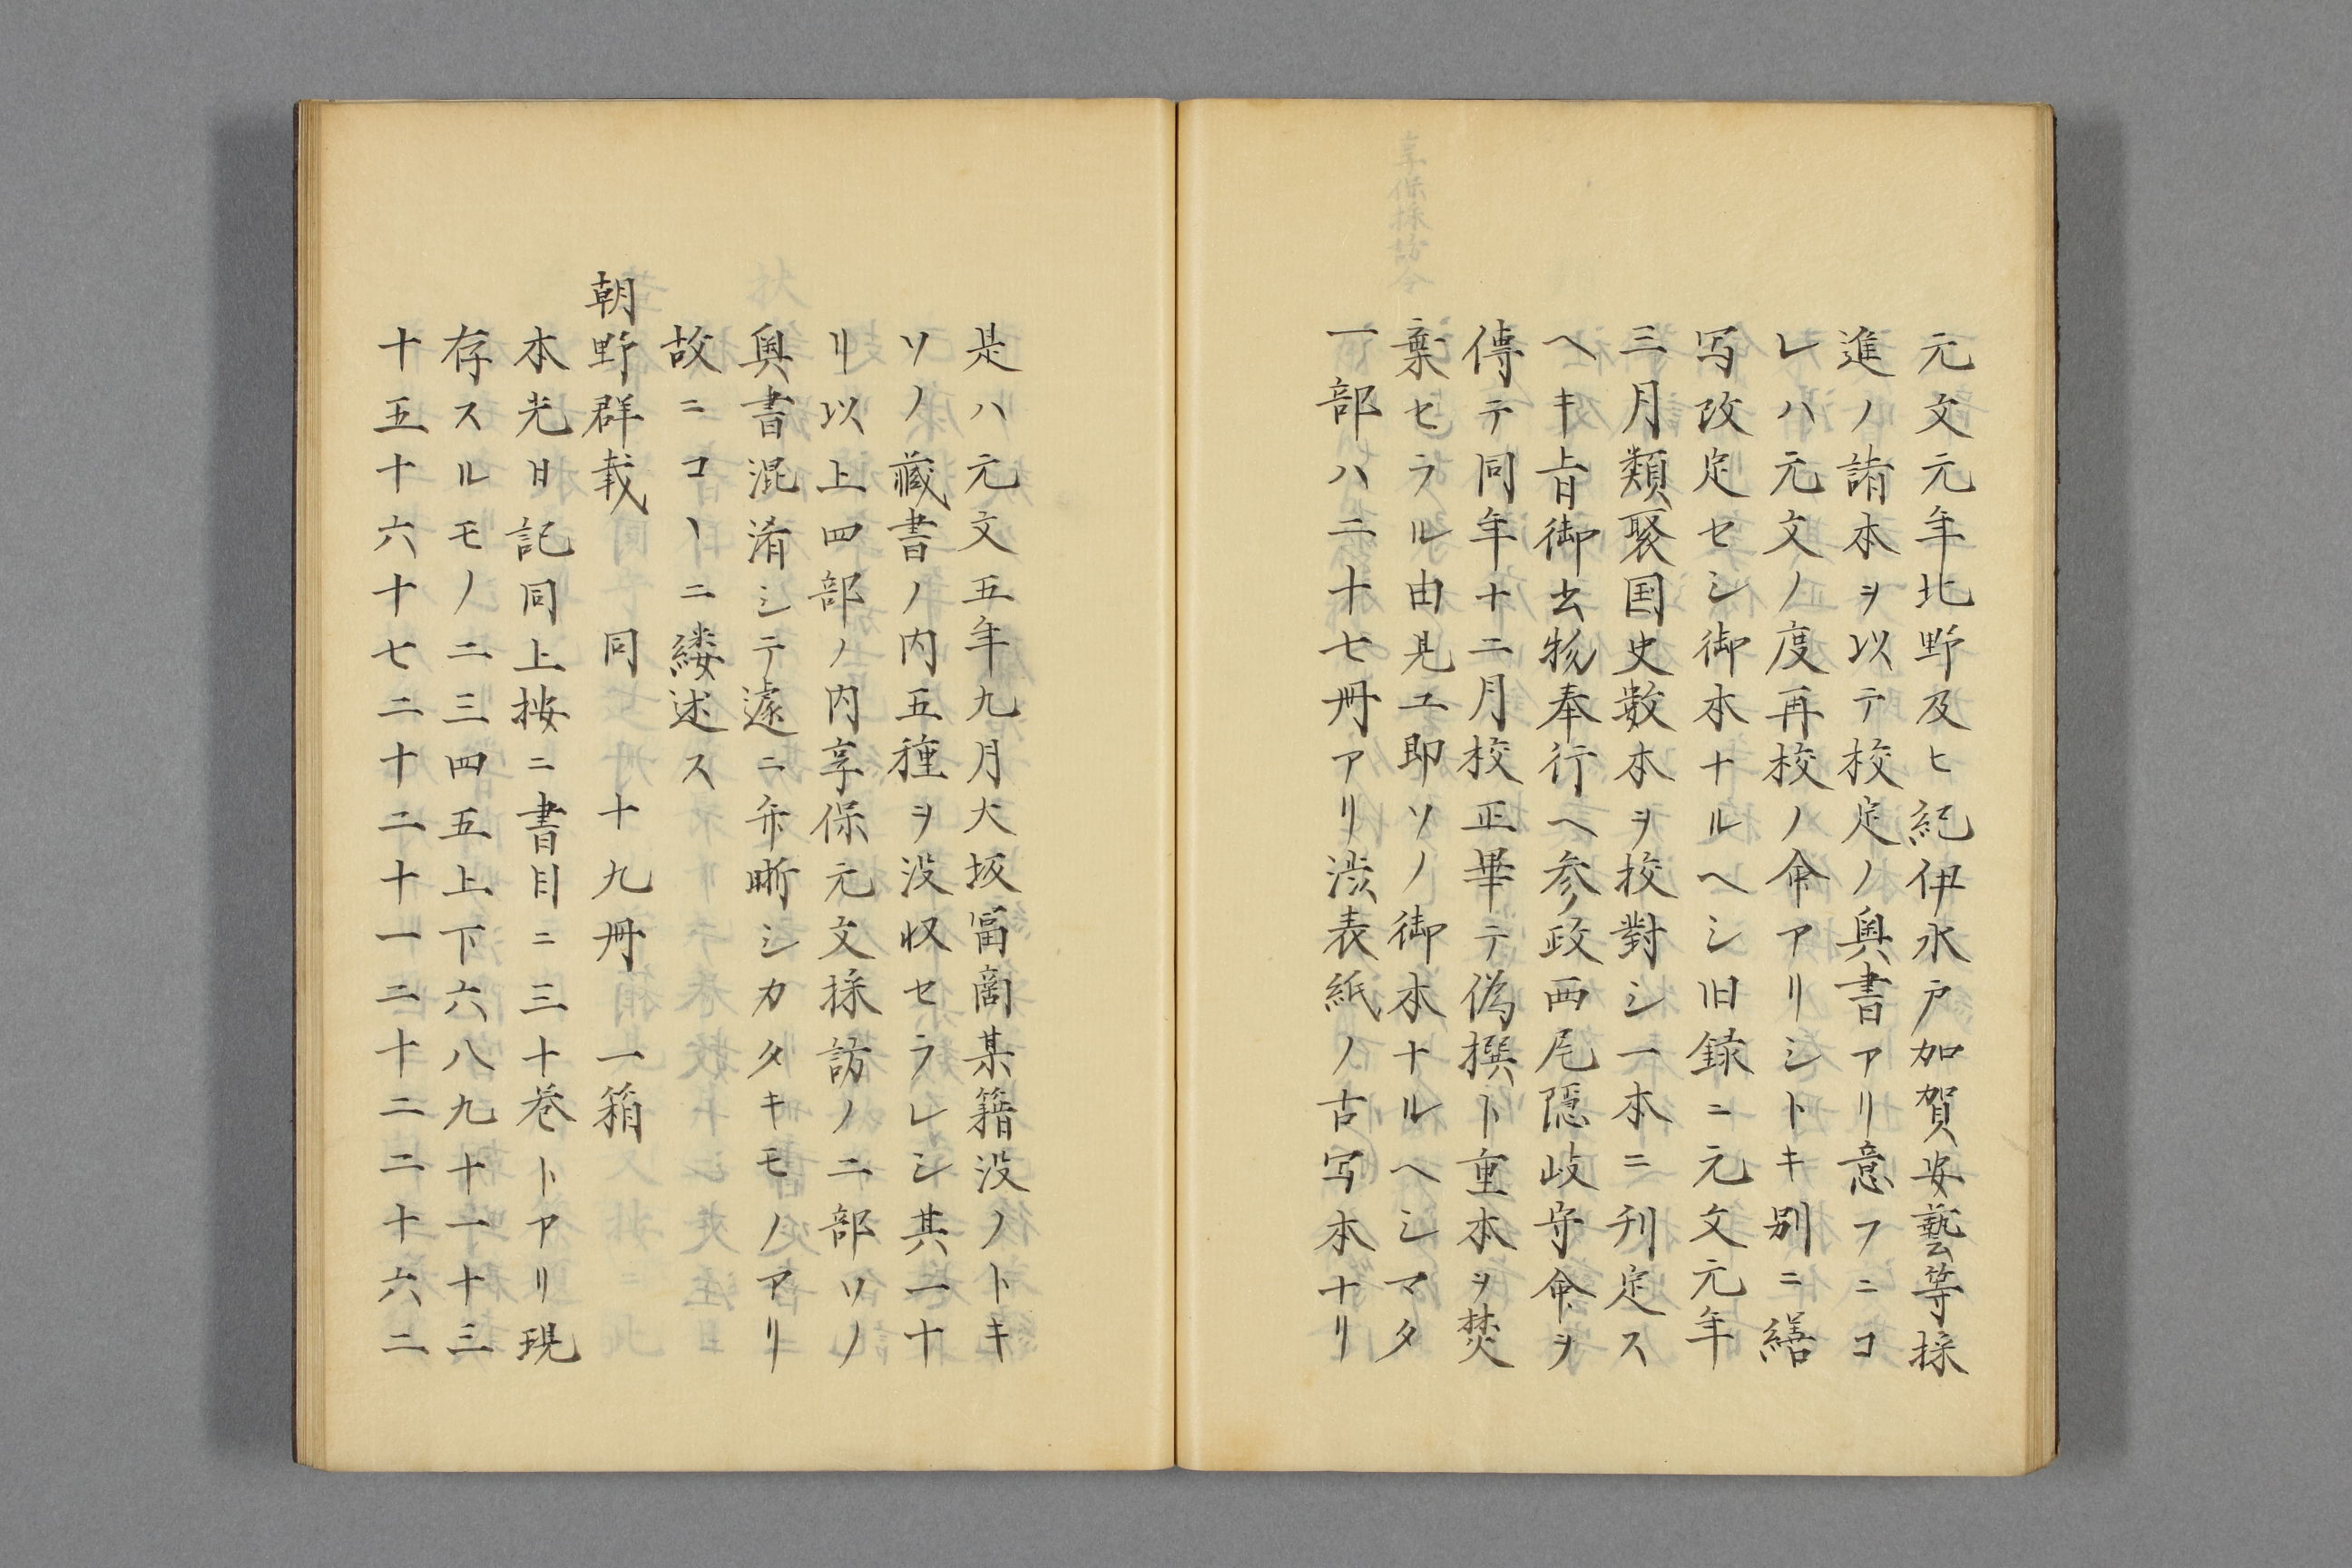 元文元年北野及ヒ紀伊水戸加賀安藝等採
進ノ諸本ヲ以テ校定ノ奥書アリ意フニコ
レハ元文ノ度再校ノ命アリシトキ別ニ繕
写改定セシ御本ナルヘシ旧録ニ元文元年
三月類聚国史数本ヲ校對シ一本ニ刊定ス
ヘキ旨御書物奉行ヘ参政西尾隠岐守命ヲ
傳テ同年十二月校正畢テ偽撰ト重本ヲ焚
棄セラル由見ユ即ソノ御本ナルヘシマタ
一部ハ二十七冊アリ渋表紙ノ古写本ナリ
是ハ元文五年九月大坂冨商某籍没ノトキ
ソノ藏書ノ内五種ヲ没収セラレシ其一ナ
リ以上四部ノ内享保元文採訪ノ二部ソノ
奥書混淆シテ遽ニ弁晰シカタキモノアリ
故ニコヽニ縷述ス
朝野群載 同 十九冊 一箱
本光日記同上按ニ書目ニ三十巻トアリ現
存スルモノ二三四五上下六八九十一十三
十五十六十七二十二十一二十二二十六二